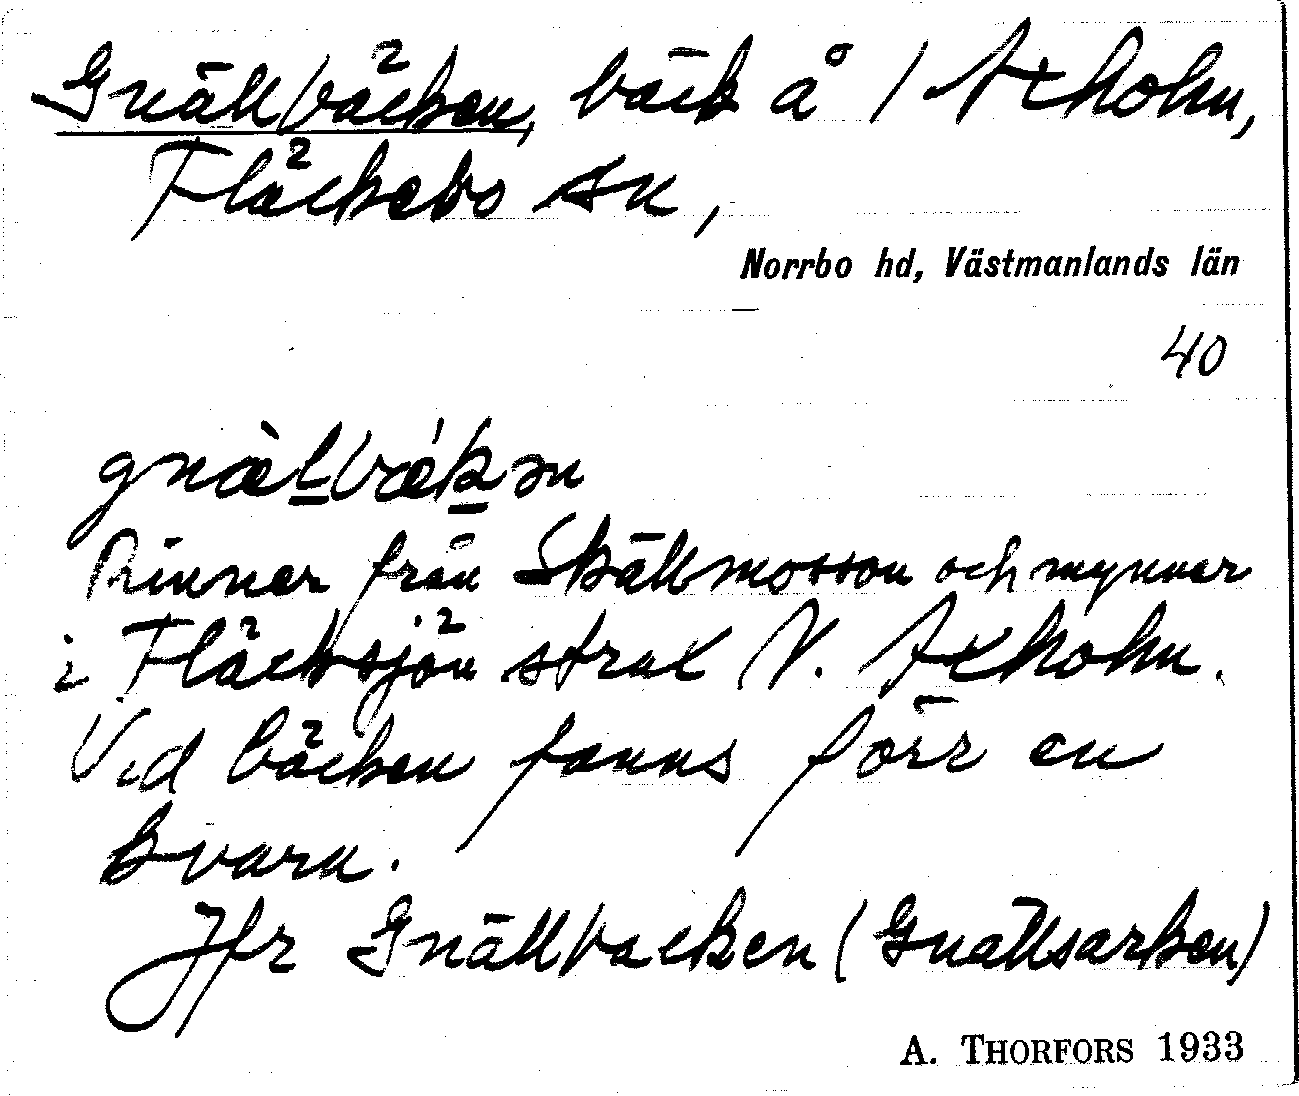 Gnällbäcken, bäck å 1 Axholm,
Fläckebo sn,
Norrbo hd, Västmanlands län
40
gnæ̀lbǽkən
Rinner från Skällmosson och mynnar
i Fläcksjön strax V. Axholm.
Vid bäcken fanns förr en
kvarn.
Jfr Gnällbacken (Gnällsarken)
A. THORFORS 1933